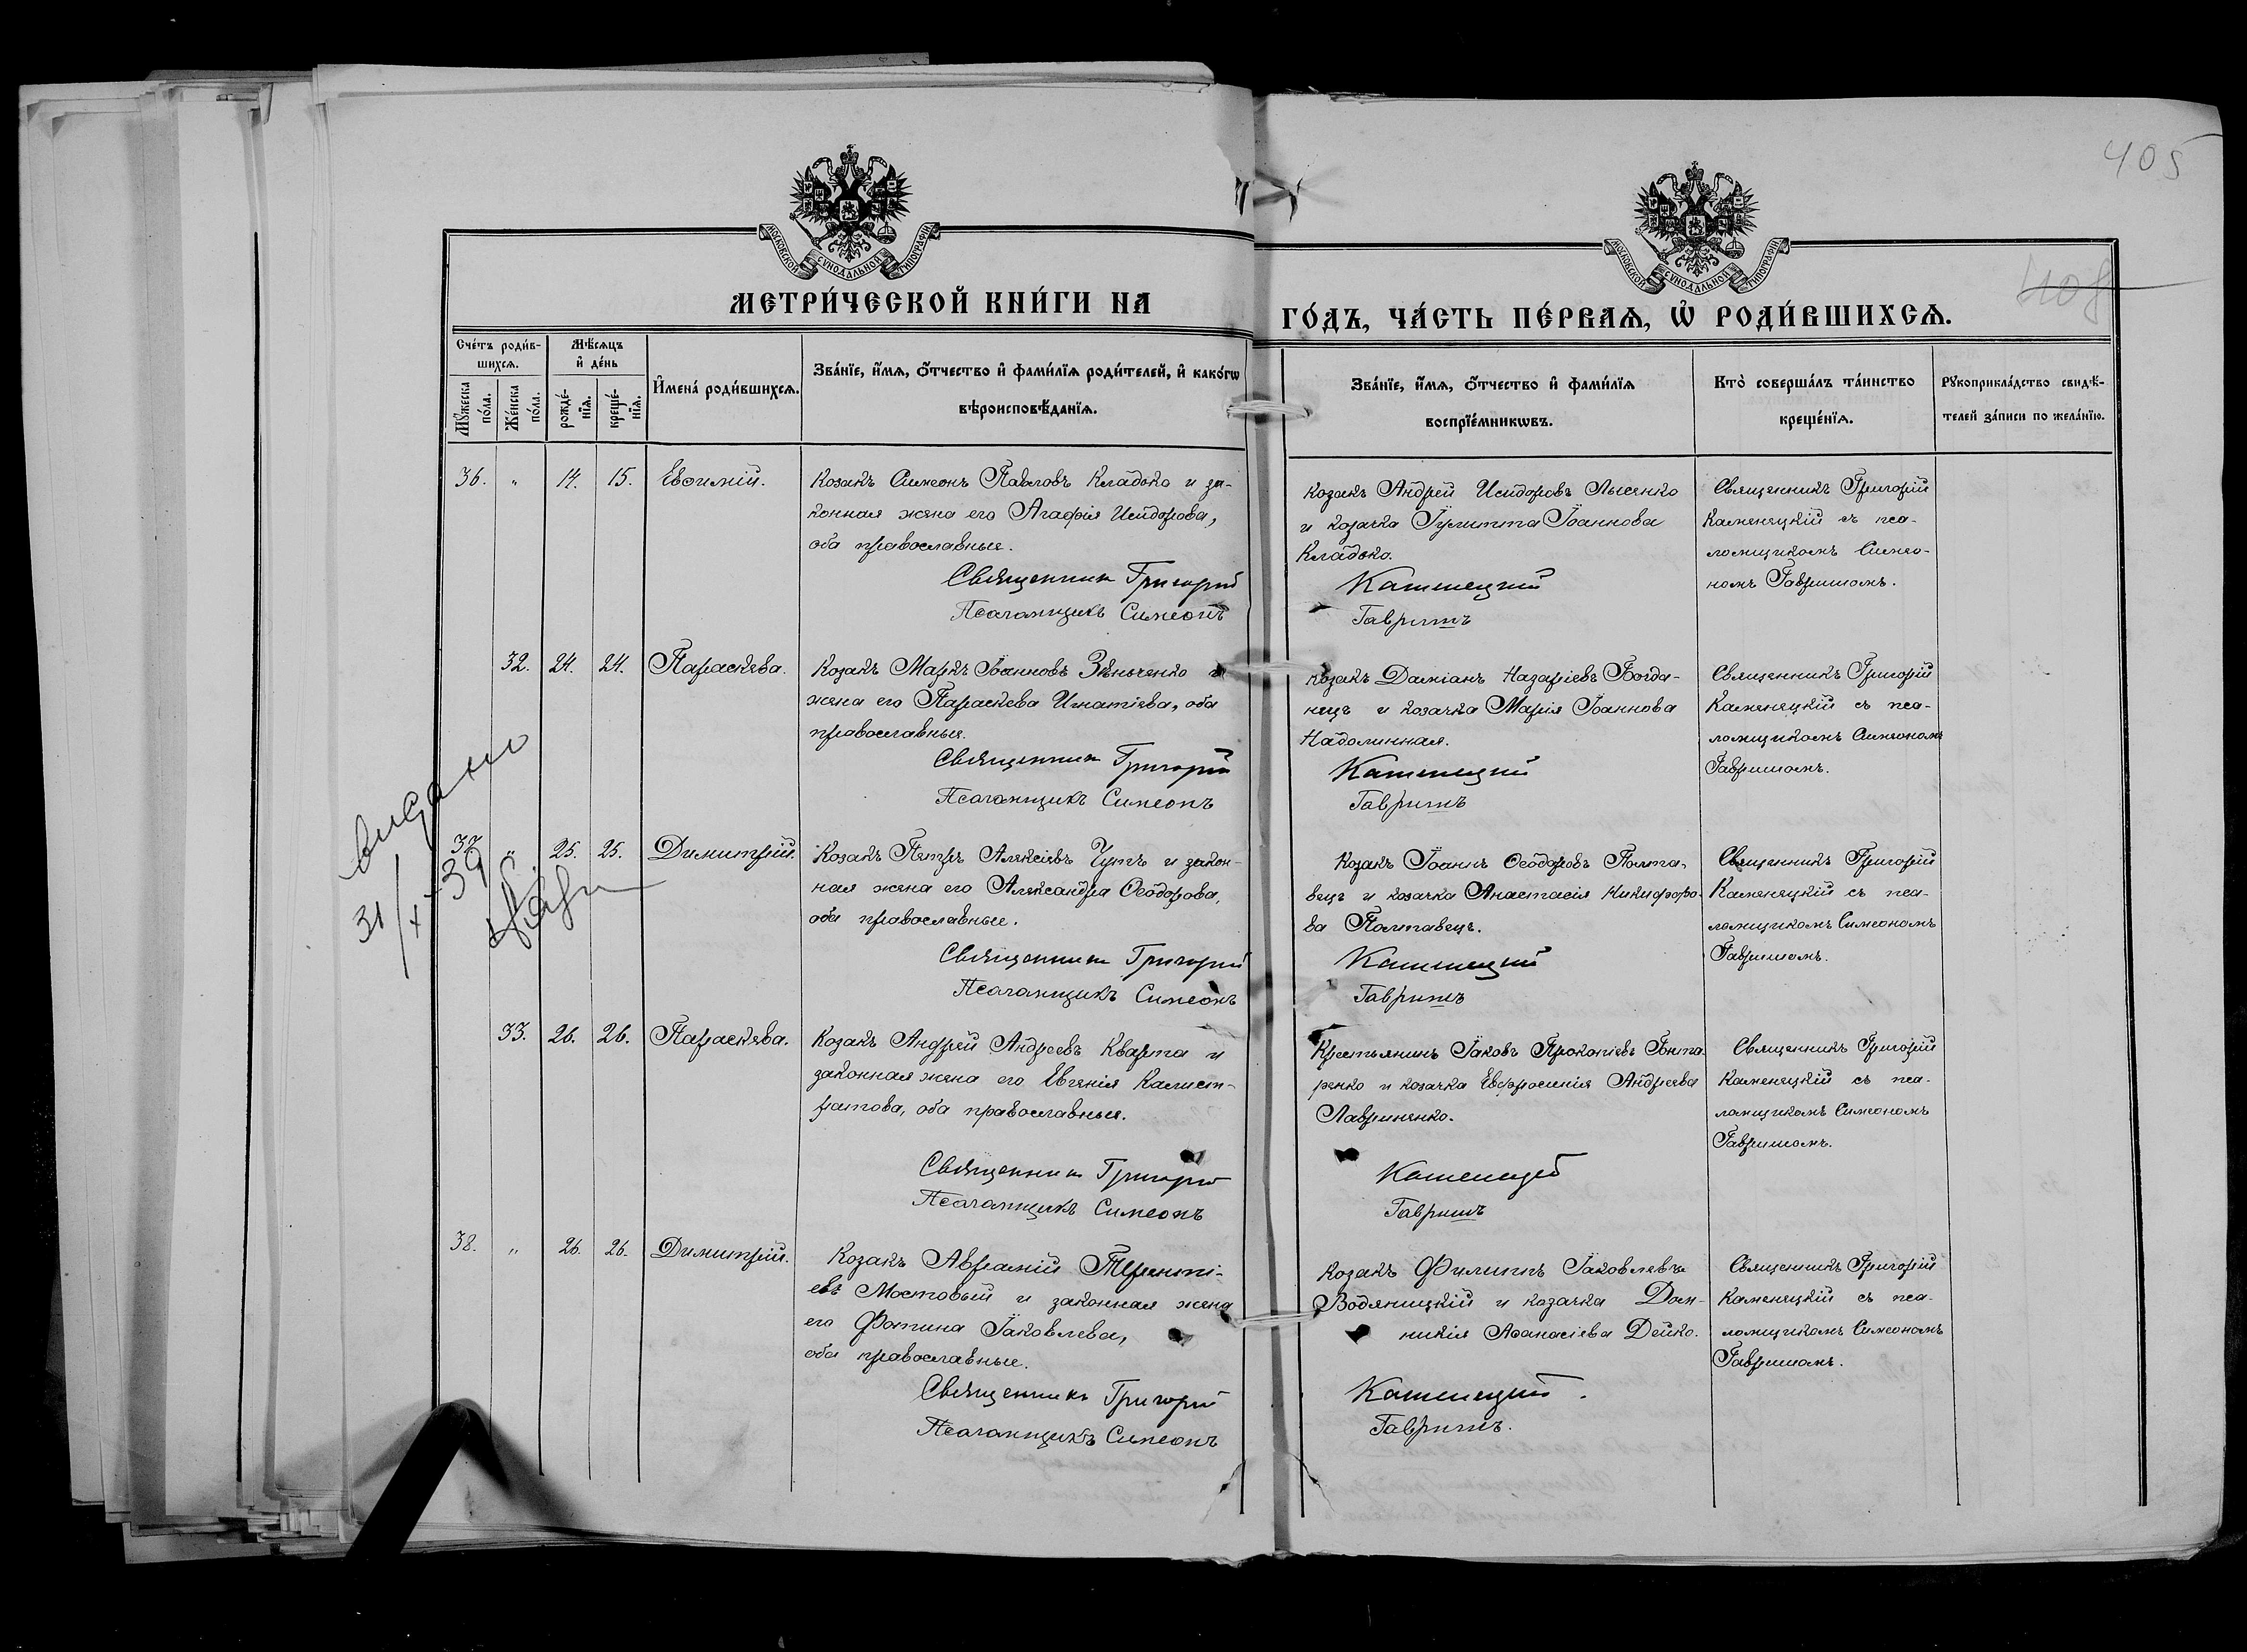 405
408
МОСКОВСКОЙ СѴНОДАЛЬНОЙ ТИПОГРАФІИ
МОСКОВСКОЙ СѴНОДАЛЬНОЙ ТИПОГРАФІИ
МЕТРИ́ЧЕСКОЙ КНИ́ГИ НА
ГО́ДЪ, ЧА́СТЬ ПЕ́РВАѦ, Ѡ҆ РОДИ́ВШИХСѦ.
Сче́тъ роди́в-
шихсѧ.
Мꙋ́жеска по́ла.
Же́нска по́ла.
Мѣ́сѧцъ
и҆ де́нь
рожде́-
нїѧ.
креще́-
нїѧ.
И҆мена̀ роди́вшихсѧ.
Зва́нїе, и҆́мѧ, ѻ҆́тчество и҆ фами́лїѧ роди́телей, и҆ како́гѡ
вѣроисповѣ́данїѧ.
Зва́нїе, и҆́мѧ, ѻ҆́тчество и҆ фами́лїѧ
воспрїе́мникѡвъ.
Кто̀ соверша́лъ та́инство
креще́нїѧ.
Рꙋкоприкла́дство свидѣ́-
телей за́писи по жела́нїю.
36. " 14. 15. Евѳимій.
Козакъ Симеонъ Павловъ Кладько и за-
конная жена его Агафія Исидорова,
оба православные.
Священникъ Григорій
Псаломщикъ Симеонъ
Козакъ Андрей Исидоровъ Лысенко
и козачка Іулитта Іоаннова
Кладько.
Каменецкій
Гавришъ
Священникъ Григорій
Каменецкій съ пса-
ломщикомъ Симео-
номъ Гавришомъ.
32. 24. 24. Параскева.
Козакъ Маркъ Іоанновъ Зѣньченко и
жена его Параскева Игнатіева, оба
православные.
Священникъ Григорій
Псаломщикъ Симеонъ
Козакъ Даміанъ Назаріевъ Богда-
нецъ и козачка Марія Іоаннова
Надолинная.
Каменецкій
Гавришъ
Священникъ Григорій
Каменецкій съ пса-
ломщикомъ Симеономъ
Гавришомъ.
видано
31/X-39
37 " 25. 25. Димитрій.
Козакъ Петръ Алексіевъ Чутъ и закон-
ная жена его Александра Ѳеодорова,
оба православные.
Священникъ Григорій
Псаломщикъ Симеонъ
Козакъ Іоаннъ Ѳеодоровъ Полта-
вецъ и козачка Анастасія Никифоро-
ва Полтавецъ.
Каменецкій
Гавришъ
Священникъ Григорій
Каменецкій съ пса-
ломщикомъ Симеономъ
Гавришомъ.
33. 26. 26. Параскева.
Козакъ Андрей Андреевъ Кварта и
законная жена его Евгенія Калист-
ратова, оба православные.
Священникъ Григорій
Псаломщикъ Симеонъ
Крестьянинъ Іаковъ Прокопіевъ Гонта-
ренко и козачка Евфросинія Андреева
Лавриненко.
Каменецкій
Гавришъ
Священникъ Григорій
Каменецкій съ пса-
ломщикомъ Симеономъ
Гавришомъ.
38. " 26. 26. Димитрій.
Козакъ Авраамій Теренті-
евъ Мостовый и законная жена
его Фотина Іаковлева,
оба православные.
Священникъ Григорій
Псаломщикъ Симеонъ
Козакъ Филиппъ Іаковлевъ
Водяницкій и козачка Дом-
никія Аѳанасіева Дейко.
Каменецкій.
Гавришъ.
Священникъ Григорій
Каменецкій съ пса-
ломщикомъ Симеономъ
Гавришомъ.